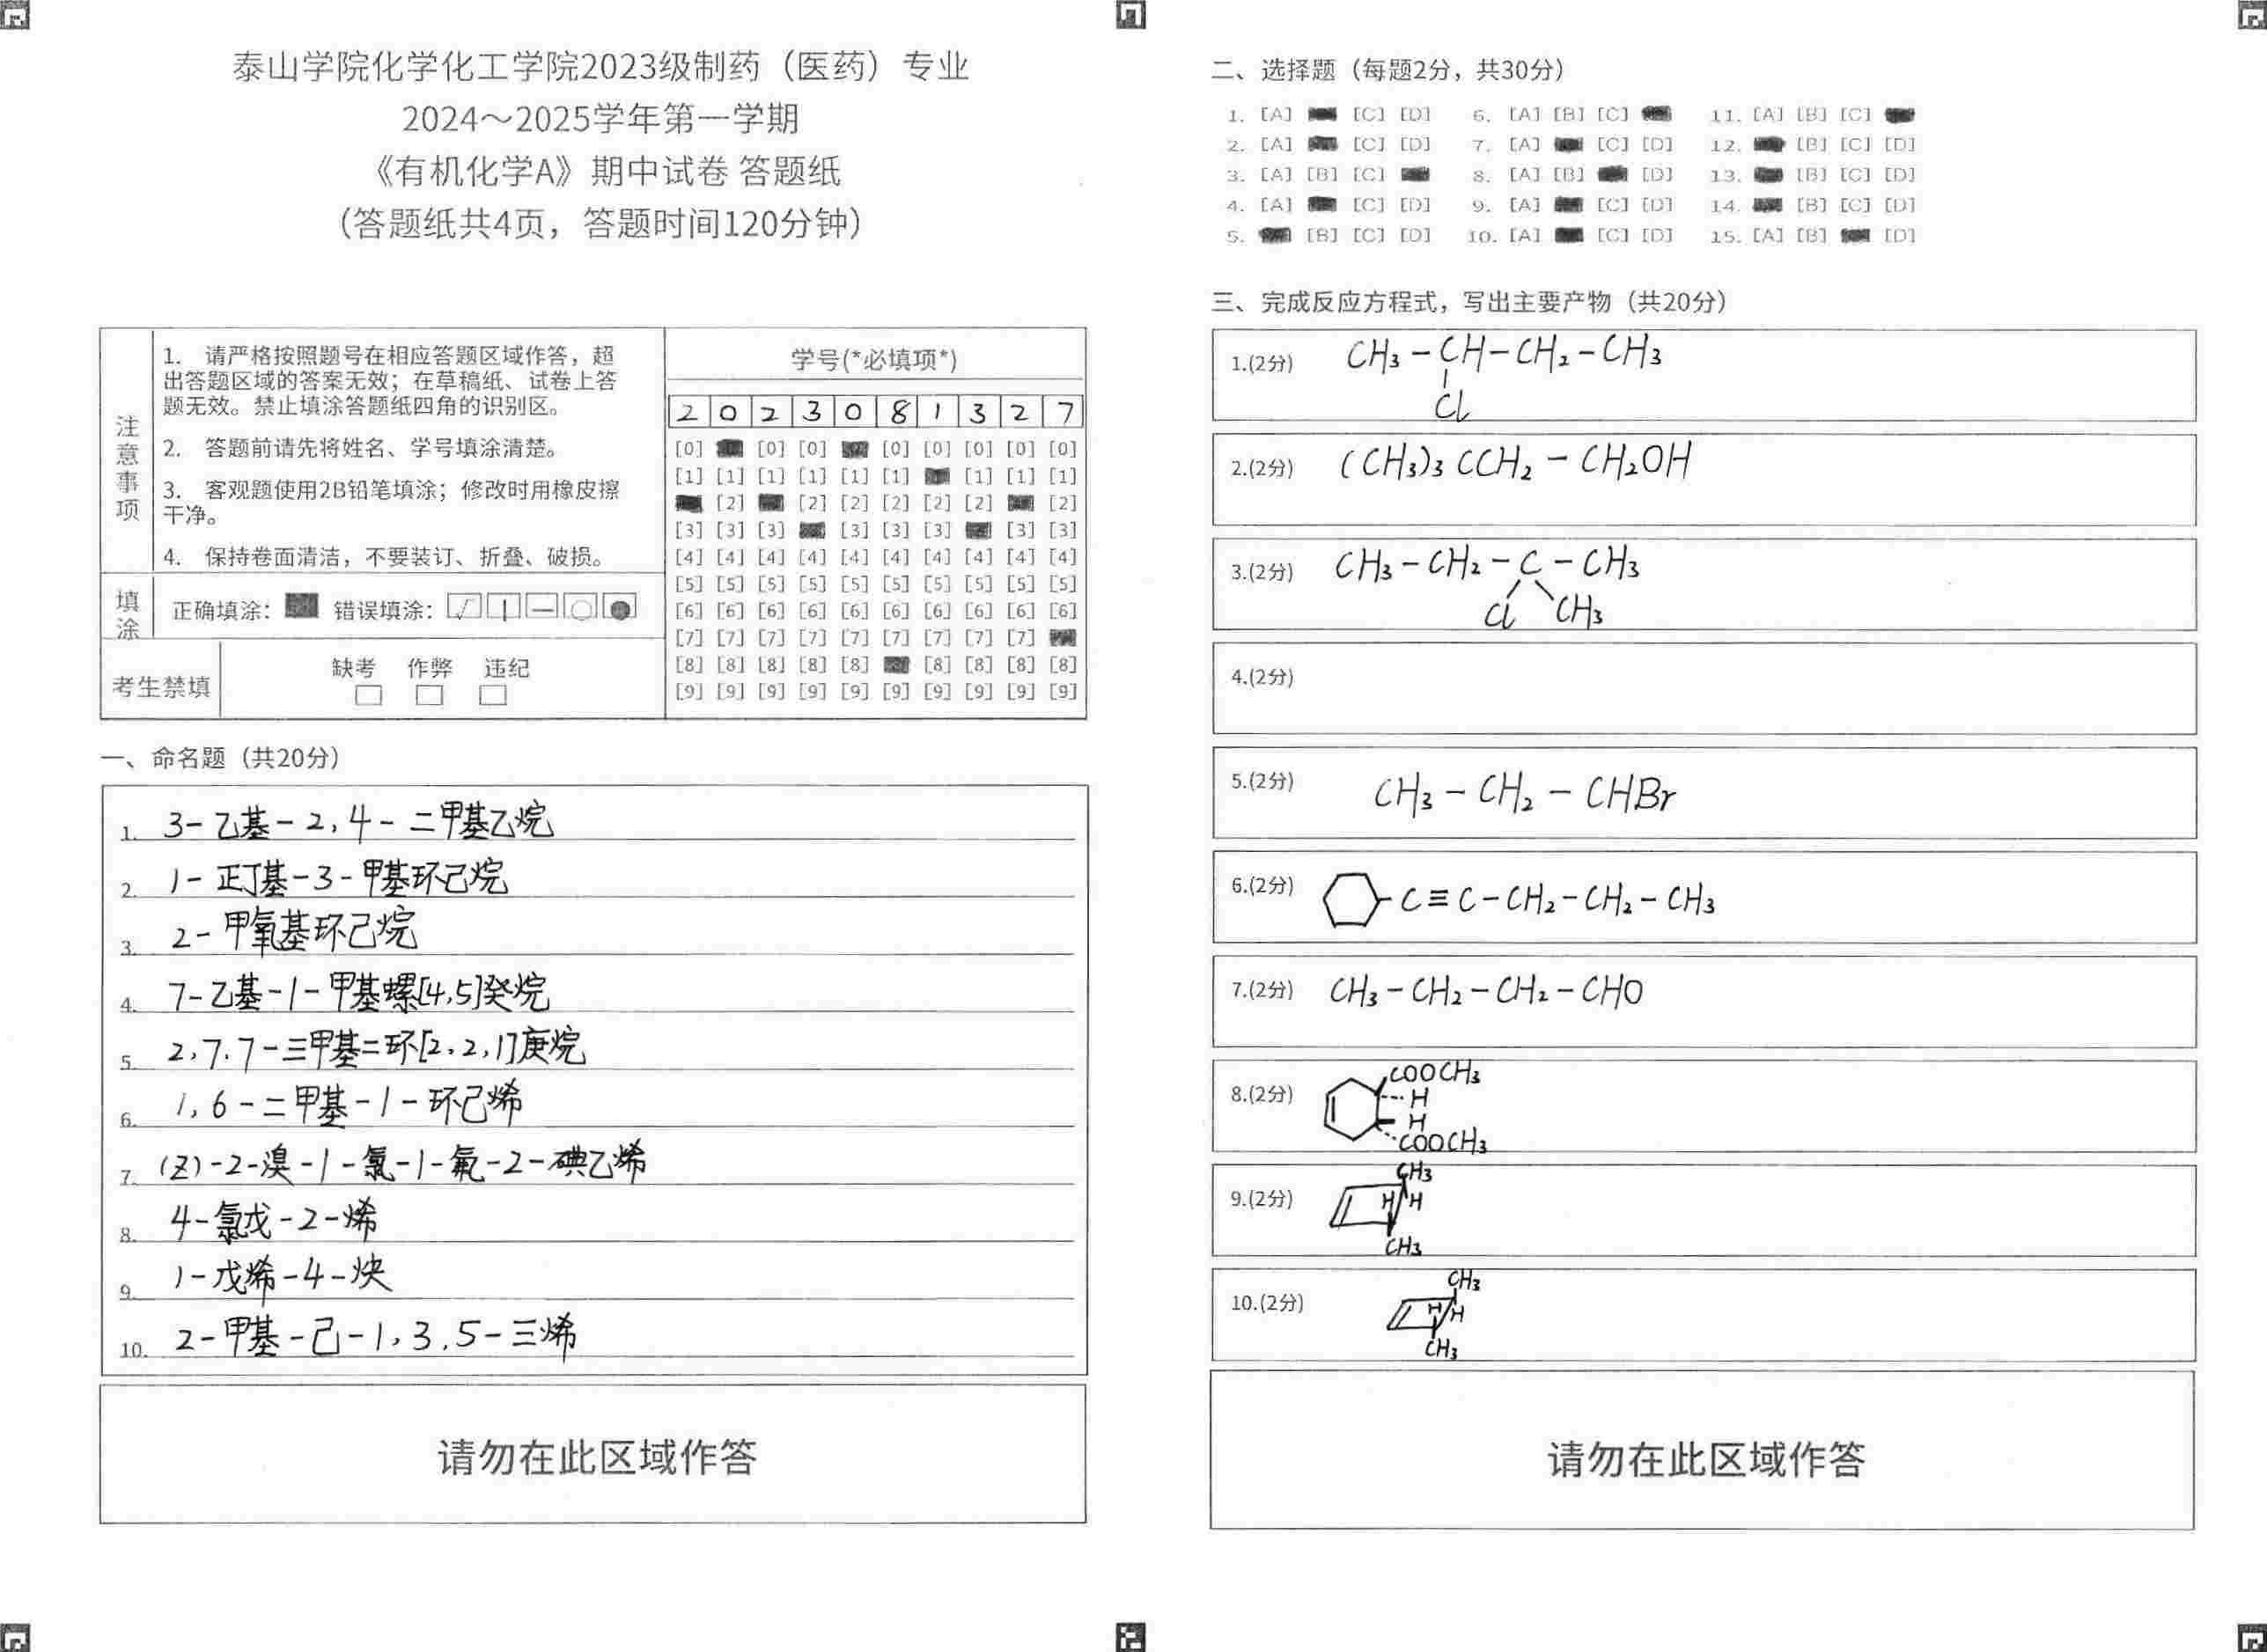 泰山学院化学化工学院2023级制药（医药）专业
2024～2025学年第一学期
《有机化学A》期中试卷 答题纸
（答题纸共4页，答题时间120分钟）
注意事项
1. 请严格按照题号在相应答题区域作答，超
出答题区域的答案无效；在草稿纸、试卷上答
题无效。禁止填涂答题纸四角的识别区。
2. 答题前请先将姓名、学号填涂清楚。
3. 客观题使用2B铅笔填涂；修改时用橡皮擦
干净。
4. 保持卷面清洁，不要装订、折叠、破损。
填涂
正确填涂： 错误填涂：
考生禁填
缺考 作弊 违纪
学号(*必填项*)
2 0 2 3 0 8 1 3 2 7
[0] [0] [0] [0] [0] [0] [0] [0]
[1] [1] [1] [1] [1] [1] [1] [1] [1]
[2] [2] [2] [2] [2] [2] [2]
[3] [3] [3] [3] [3] [3] [3] [3]
[4] [4] [4] [4] [4] [4] [4] [4] [4] [4]
[5] [5] [5] [5] [5] [5] [5] [5] [5] [5]
[6] [6] [6] [6] [6] [6] [6] [6] [6] [6]
[7] [7] [7] [7] [7] [7] [7] [7] [7]
[8] [8] [8] [8] [8] [8] [8] [8] [8]
[9] [9] [9] [9] [9] [9] [9] [9] [9] [9]
一、命名题（共20分）
1. 3-乙基-2,4-二甲基乙烷
2. 1-正丁基-3-甲基环己烷
3. 2-甲氧基环己烷
4. 7-乙基-1-甲基螺[4,5]癸烷
5. 2,7,7-三甲基二环[2,2,1]庚烷
6. 1,6-二甲基-1-环己烯
7. (Z)-2-溴-1-氯-1-氟-2-碘乙烯
8. 4-氯戊-2-烯
9. 1-戊烯-4-炔
10. 2-甲基-己-1,3,5-三烯
请勿在此区域作答
二、选择题（每题2分，共30分）
1. [A] [C] [D] 6. [A] [B] [C] 11. [A] [B] [C]
2. [A] [C] [D] 7. [A] [C] [D] 12. [B] [C] [D]
3. [A] [B] [C] 8. [A] [B] [D] 13. [B] [C] [D]
4. [A] [C] [D] 9. [A] [C] [D] 14. [B] [C] [D]
5. [B] [C] [D] 10. [A] [C] [D] 15. [A] [B] [D]
三、完成反应方程式，写出主要产物（共20分）
1.(2分) CH₃-CH-CH₂-CH₃
Cl
2.(2分) (CH₃)₃CCH₂-CH₂OH
3.(2分) CH₃-CH₂-C-CH₃
Cl CH₃
4.(2分)
5.(2分) CH₃-CH₂-CHBr
6.(2分) -C≡C-CH₂-CH₂-CH₃
7.(2分) CH₃-CH₂-CH₂-CHO
8.(2分) COOCH₃
H
H
COOCH₃
9.(2分) CH₃
H H
CH₃
10.(2分) CH₃
H H
CH₃
请勿在此区域作答